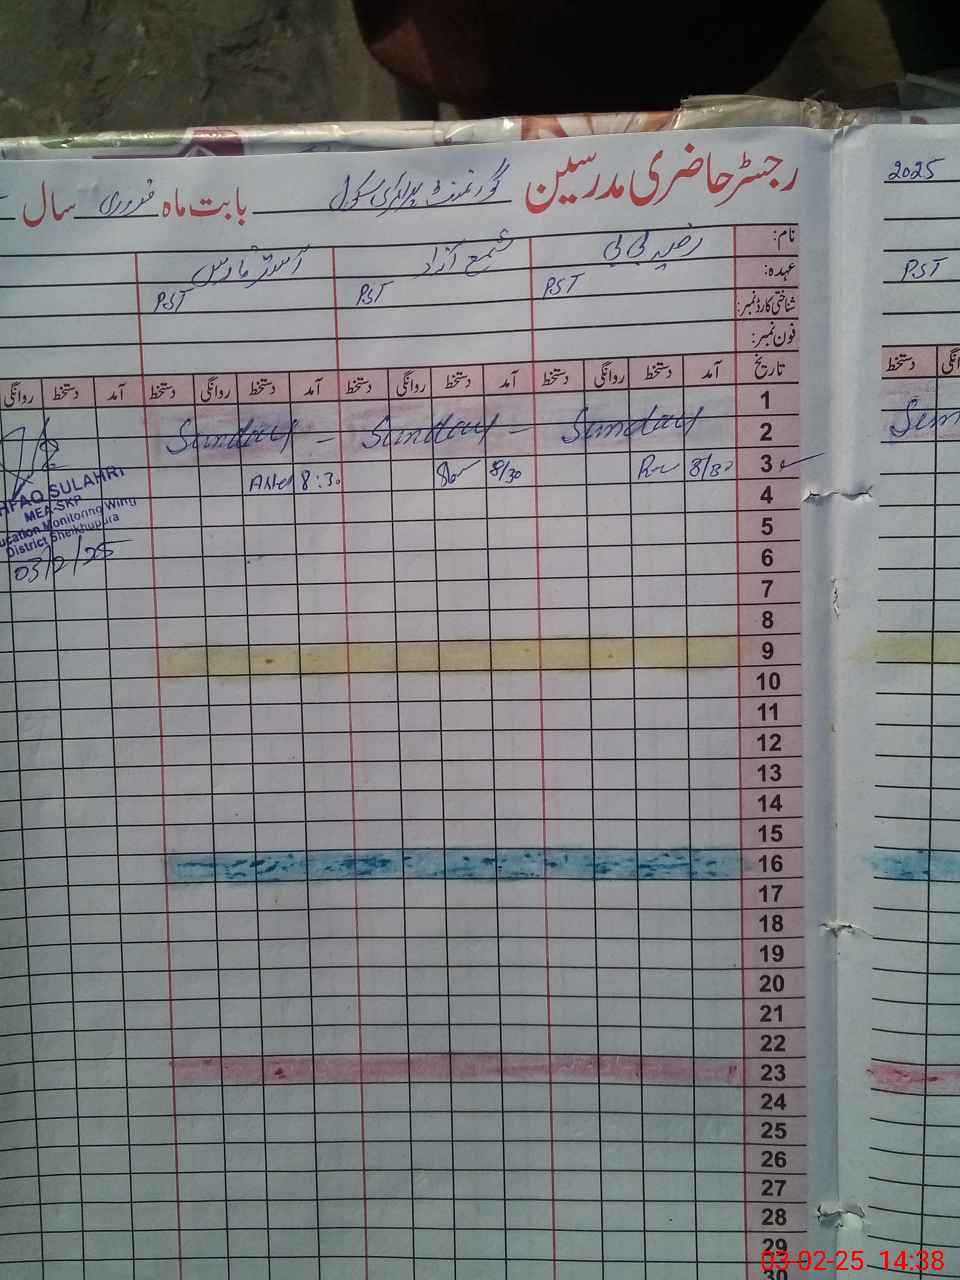 رجسٹر حاضری مدرسین گورنمنٹ پرائمری سکول بابت ماہ فروری سال
2025
نام: رضیہ بی بی شمع آزاد
عہدہ: PST PST PST
PST
شناختی کارڈ نمبر:
فون نمبر:
تاریخ آمد دستخط روانگی دستخط آمد دستخط روانگی دستخط آمد دستخط روانگی دستخط آمد دستخط روانگی
دستخط
1
2 Sunday – Sunday – Sunday
3 8/30 8/30 8:30
4
5
6
7
8
9
10
11
12
13
14
15
16
17
18
19
20
21
22
23
24
25
26
27
28
29
30
SULAHRI
MEA-SKP
Monitoring Wing
District Sheikhupura
03/2/25
03-02-25 14:38